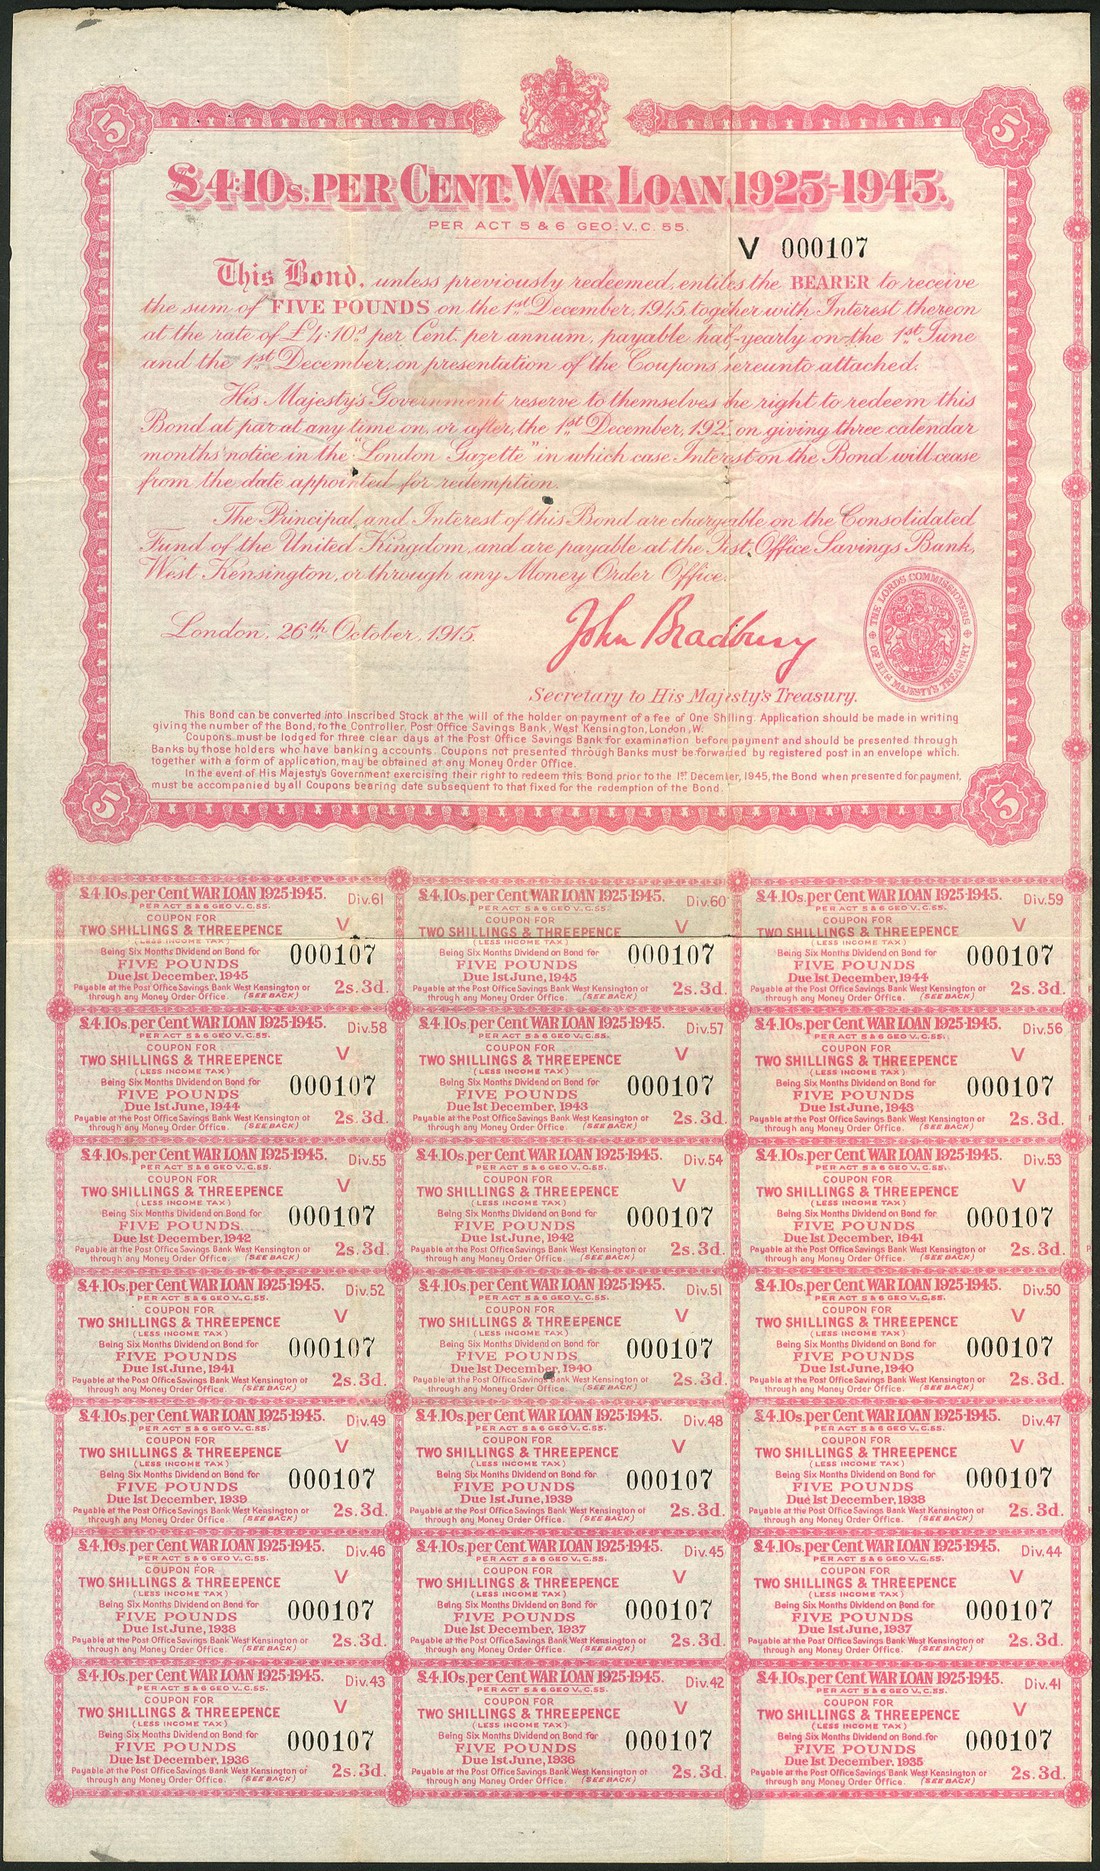 5 5
£4:10s. PER CENT. WAR LOAN, 1925-1945.
PER ACT 5 & 6 GEO. V. C. 55.
V 000107
This Bond, unless previously redeemed, entitles the BEARER to receive
the sum of FIVE POUNDS on the 1st December, 1945, together with Interest thereon
at the rate of £4:10s per Cent. per annum, payable half-yearly on the 1st June
and the 1st December, on presentation of the Coupons hereunto attached.
His Majesty's Government reserve to themselves the right to redeem this
Bond at par at any time on, or after, the 1st December, 192 on giving three calendar
months' notice in the "London Gazette" in which case Interest on the Bond will cease
from the date appointed for redemption.
The Principal and Interest of this Bond are chargeable on the Consolidated
Fund of the United Kingdom, and are payable at the Post Office Savings Bank,
West Kensington, or through any Money Order Office.
London, 26th October, 1915.
John Bradbury
Secretary to His Majesty's Treasury.
THE LORDS COMMISSIONERS OF HIS MAJESTY'S TREASURY
This Bond can be converted into Inscribed Stock at the will of the holder on payment of a fee of One Shilling. Application should be made in writing
giving the number of the Bond, to the Controller, Post Office Savings Bank, West Kensington, London, W.
Coupons must be lodged for three clear days at the Post Office Savings Bank for examination before payment and should be presented through
Banks by those holders who have banking accounts. Coupons not presented through Banks must be forwarded by registered post in an envelope which,
together with a form of application, may be obtained at any Money Order Office.
In the event of His Majesty's Government exercising their right to redeem this Bond prior to the 1st December, 1945, the Bond when presented for payment,
must be accompanied by all Coupons bearing date subsequent to that fixed for the redemption of the Bond.
5 5
£4.10s. per Cent WAR LOAN 1925-1945. Div. 61
PER ACT 5 & 6 GEO V., C. 55.
COUPON FOR
TWO SHILLINGS & THREEPENCE V
(LESS INCOME TAX)
Being Six Months Dividend on Bond for 000107
FIVE POUNDS
Due 1st December, 1945
Payable at the Post Office Savings Bank West Kensington or 2s. 3d.
through any Money Order Office. (SEE BACK)
£4.10s. per Cent WAR LOAN 1925-1945. Div. 60
PER ACT 5 & 6 GEO V., C. 55.
COUPON FOR
TWO SHILLINGS & THREEPENCE V
(LESS INCOME TAX)
Being Six Months Dividend on Bond for 000107
FIVE POUNDS
Due 1st June, 1945
Payable at the Post Office Savings Bank West Kensington or 2s. 3d.
through any Money Order Office. (SEE BACK)
£4.10s. per Cent WAR LOAN 1925-1945. Div. 59
PER ACT 5 & 6 GEO V., C. 55.
COUPON FOR
TWO SHILLINGS & THREEPENCE V
(LESS INCOME TAX)
Being Six Months Dividend on Bond for 000107
FIVE POUNDS
Due 1st December, 1944
Payable at the Post Office Savings Bank West Kensington or 2s. 3d.
through any Money Order Office. (SEE BACK)
£4.10s. per Cent WAR LOAN 1925-1945. Div. 58
PER ACT 5 & 6 GEO V., C. 55.
COUPON FOR
TWO SHILLINGS & THREEPENCE V
(LESS INCOME TAX)
Being Six Months Dividend on Bond for 000107
FIVE POUNDS
Due 1st June, 1944
Payable at the Post Office Savings Bank West Kensington or 2s. 3d.
through any Money Order Office. (SEE BACK)
£4.10s. per Cent WAR LOAN 1925-1945. Div. 57
PER ACT 5 & 6 GEO V., C. 55.
COUPON FOR
TWO SHILLINGS & THREEPENCE V
(LESS INCOME TAX)
Being Six Months Dividend on Bond for 000107
FIVE POUNDS
Due 1st December, 1943
Payable at the Post Office Savings Bank West Kensington or 2s. 3d.
through any Money Order Office. (SEE BACK)
£4.10s. per Cent WAR LOAN 1925-1945. Div. 56
PER ACT 5 & 6 GEO V., C. 55.
COUPON FOR
TWO SHILLINGS & THREEPENCE V
(LESS INCOME TAX)
Being Six Months Dividend on Bond for 000107
FIVE POUNDS
Due 1st June, 1943
Payable at the Post Office Savings Bank West Kensington or 2s. 3d.
through any Money Order Office. (SEE BACK)
£4.10s. per Cent WAR LOAN 1925-1945. Div. 55
PER ACT 5 & 6 GEO V., C. 55.
COUPON FOR
TWO SHILLINGS & THREEPENCE V
(LESS INCOME TAX)
Being Six Months Dividend on Bond for 000107
FIVE POUNDS
Due 1st December, 1942
Payable at the Post Office Savings Bank West Kensington or 2s. 3d.
through any Money Order Office. (SEE BACK)
£4.10s. per Cent WAR LOAN 1925-1945. Div. 54
PER ACT 5 & 6 GEO V., C. 55.
COUPON FOR
TWO SHILLINGS & THREEPENCE V
(LESS INCOME TAX)
Being Six Months Dividend on Bond for 000107
FIVE POUNDS
Due 1st June, 1942
Payable at the Post Office Savings Bank West Kensington or 2s. 3d.
through any Money Order Office. (SEE BACK)
£4.10s. per Cent WAR LOAN 1925-1945. Div. 53
PER ACT 5 & 6 GEO V., C. 55.
COUPON FOR
TWO SHILLINGS & THREEPENCE V
(LESS INCOME TAX)
Being Six Months Dividend on Bond for 000107
FIVE POUNDS
Due 1st December, 1941
Payable at the Post Office Savings Bank West Kensington or 2s. 3d.
through any Money Order Office. (SEE BACK)
£4.10s. per Cent WAR LOAN 1925-1945. Div. 52
PER ACT 5 & 6 GEO V., C. 55.
COUPON FOR
TWO SHILLINGS & THREEPENCE V
(LESS INCOME TAX)
Being Six Months Dividend on Bond for 000107
FIVE POUNDS
Due 1st June, 1941
Payable at the Post Office Savings Bank West Kensington or 2s. 3d.
through any Money Order Office. (SEE BACK)
£4.10s. per Cent WAR LOAN 1925-1945. Div. 51
PER ACT 5 & 6 GEO V., C. 55.
COUPON FOR
TWO SHILLINGS & THREEPENCE V
(LESS INCOME TAX)
Being Six Months Dividend on Bond for 000107
FIVE POUNDS
Due 1st December, 1940
Payable at the Post Office Savings Bank West Kensington or 2s. 3d.
through any Money Order Office. (SEE BACK)
£4.10s. per Cent WAR LOAN 1925-1945. Div. 50
PER ACT 5 & 6 GEO V., C. 55.
COUPON FOR
TWO SHILLINGS & THREEPENCE V
(LESS INCOME TAX)
Being Six Months Dividend on Bond for 000107
FIVE POUNDS
Due 1st June, 1940
Payable at the Post Office Savings Bank West Kensington or 2s. 3d.
through any Money Order Office. (SEE BACK)
£4.10s. per Cent WAR LOAN 1925-1945. Div. 49
PER ACT 5 & 6 GEO V., C. 55.
COUPON FOR
TWO SHILLINGS & THREEPENCE V
(LESS INCOME TAX)
Being Six Months Dividend on Bond for 000107
FIVE POUNDS
Due 1st December, 1939
Payable at the Post Office Savings Bank West Kensington or 2s. 3d.
through any Money Order Office. (SEE BACK)
£4.10s. per Cent WAR LOAN 1925-1945. Div. 48
PER ACT 5 & 6 GEO V., C. 55.
COUPON FOR
TWO SHILLINGS & THREEPENCE V
(LESS INCOME TAX)
Being Six Months Dividend on Bond for 000107
FIVE POUNDS
Due 1st June, 1939
Payable at the Post Office Savings Bank West Kensington or 2s. 3d.
through any Money Order Office. (SEE BACK)
£4.10s. per Cent WAR LOAN 1925-1945. Div. 47
PER ACT 5 & 6 GEO V., C. 55.
COUPON FOR
TWO SHILLINGS & THREEPENCE V
(LESS INCOME TAX)
Being Six Months Dividend on Bond for 000107
FIVE POUNDS
Due 1st December, 1938
Payable at the Post Office Savings Bank West Kensington or 2s. 3d.
through any Money Order Office. (SEE BACK)
£4.10s. per Cent WAR LOAN 1925-1945. Div. 46
PER ACT 5 & 6 GEO V., C. 55.
COUPON FOR
TWO SHILLINGS & THREEPENCE V
(LESS INCOME TAX)
Being Six Months Dividend on Bond for 000107
FIVE POUNDS
Due 1st June, 1938
Payable at the Post Office Savings Bank West Kensington or 2s. 3d.
through any Money Order Office. (SEE BACK)
£4.10s. per Cent WAR LOAN 1925-1945. Div. 45
PER ACT 5 & 6 GEO V., C. 55.
COUPON FOR
TWO SHILLINGS & THREEPENCE V
(LESS INCOME TAX)
Being Six Months Dividend on Bond for 000107
FIVE POUNDS
Due 1st December, 1937
Payable at the Post Office Savings Bank West Kensington or 2s. 3d.
through any Money Order Office. (SEE BACK)
£4.10s. per Cent WAR LOAN 1925-1945. Div. 44
PER ACT 5 & 6 GEO V., C. 55.
COUPON FOR
TWO SHILLINGS & THREEPENCE V
(LESS INCOME TAX)
Being Six Months Dividend on Bond for 000107
FIVE POUNDS
Due 1st June, 1937
Payable at the Post Office Savings Bank West Kensington or 2s. 3d.
through any Money Order Office. (SEE BACK)
£4.10s. per Cent WAR LOAN 1925-1945. Div. 43
PER ACT 5 & 6 GEO V., C. 55.
COUPON FOR
TWO SHILLINGS & THREEPENCE V
(LESS INCOME TAX)
Being Six Months Dividend on Bond for 000107
FIVE POUNDS
Due 1st December, 1936
Payable at the Post Office Savings Bank West Kensington or 2s. 3d.
through any Money Order Office. (SEE BACK)
£4.10s. per Cent WAR LOAN 1925-1945. Div. 42
PER ACT 5 & 6 GEO V., C. 55.
COUPON FOR
TWO SHILLINGS & THREEPENCE V
(LESS INCOME TAX)
Being Six Months Dividend on Bond for 000107
FIVE POUNDS
Due 1st June, 1936
Payable at the Post Office Savings Bank West Kensington or 2s. 3d.
through any Money Order Office. (SEE BACK)
£4.10s. per Cent WAR LOAN 1925-1945. Div. 41
PER ACT 5 & 6 GEO V., C. 55.
COUPON FOR
TWO SHILLINGS & THREEPENCE V
(LESS INCOME TAX)
Being Six Months Dividend on Bond for 000107
FIVE POUNDS
Due 1st December, 1935
Payable at the Post Office Savings Bank West Kensington or 2s. 3d.
through any Money Order Office. (SEE BACK)